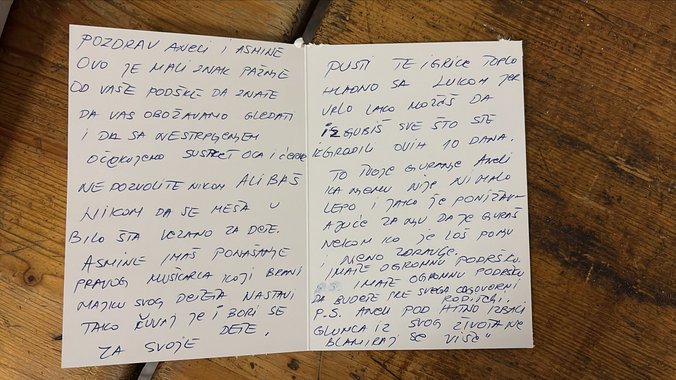 POZDRAV ANELI I ASMINE
OVO JE MALI ZNAK PAŽNJE
OD VAŠE PODŠKE DA ZNATE
DA VAS OBOŽAVAMO GLEDATI
I DA SA NESTRPLJENJEM
OČEKUJEMO SUSRET OCA I ĆERKE
NE DOZVOLITE NIKOM ALI BAŠ
NIKOM DA SE MEŠA U
BILO ŠTA VEZANO ZA DETE.
ASMINE IMAŠ PONAŠANJE
PRAVOG MUŠKARCA KOJI BRANI
MAJKU SVOG DETETA NASTAVI
TAKO ČUVAJ JE I BORI SE
ZA SVOJE DETE.
PUSTI TE IGRICE TOPLO
HLADNO SA LUKOM JER
VRLO LAKO MOŽEŠ DA
IZGUBIŠ SVE ŠTO STE
IZGRADILI OVIH 10 DANA.
TO TVOJE GURANJE ANELI
KA NJEMU NIJE NI MALO
LEPO I JAKO JE PONIŽAV-
AJUĆE ZA NJU DA JE GURAŠ
NEKOM KO JE LOŠ PO NJU
I NJENO ZDRAVLJE.
IMATE OGROMNU PODRŠKU.
P.S. IMATE OGROMNU PODRŠKU
DA BUDETE PRE SVEGA ODGOVORNI
RODITELJI.
P.S. ANELI POD HITNO IZBACI
GLUMCA IZ SVOG ŽIVOTA NE
BLAMIRAJ SE VIŠE"